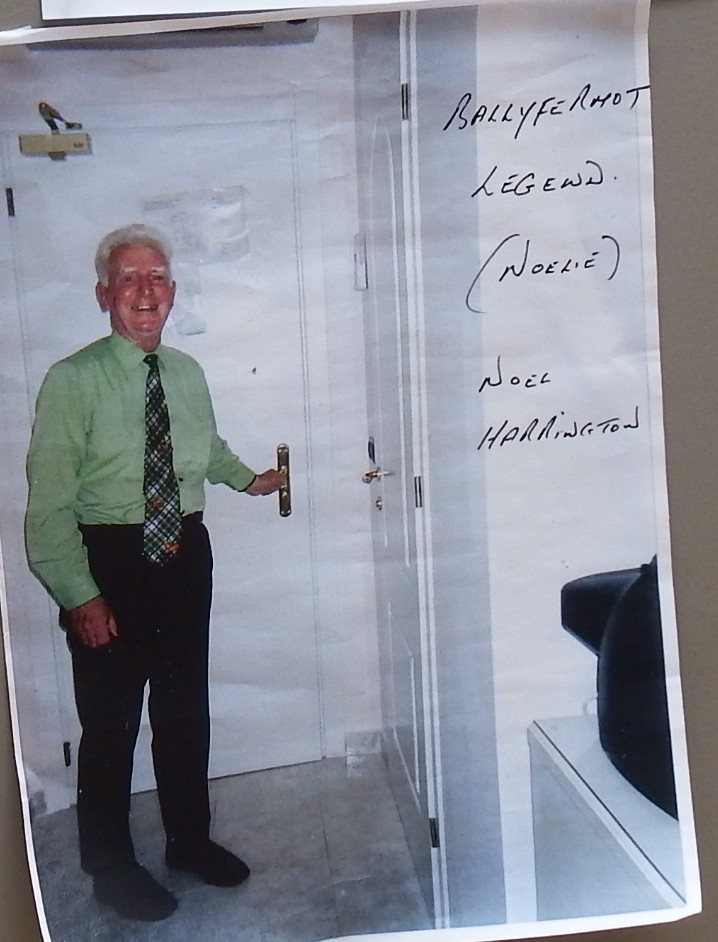 BALLYFERMOT
LEGEND.
(NOELIE)
NOEL
HARRINGTON